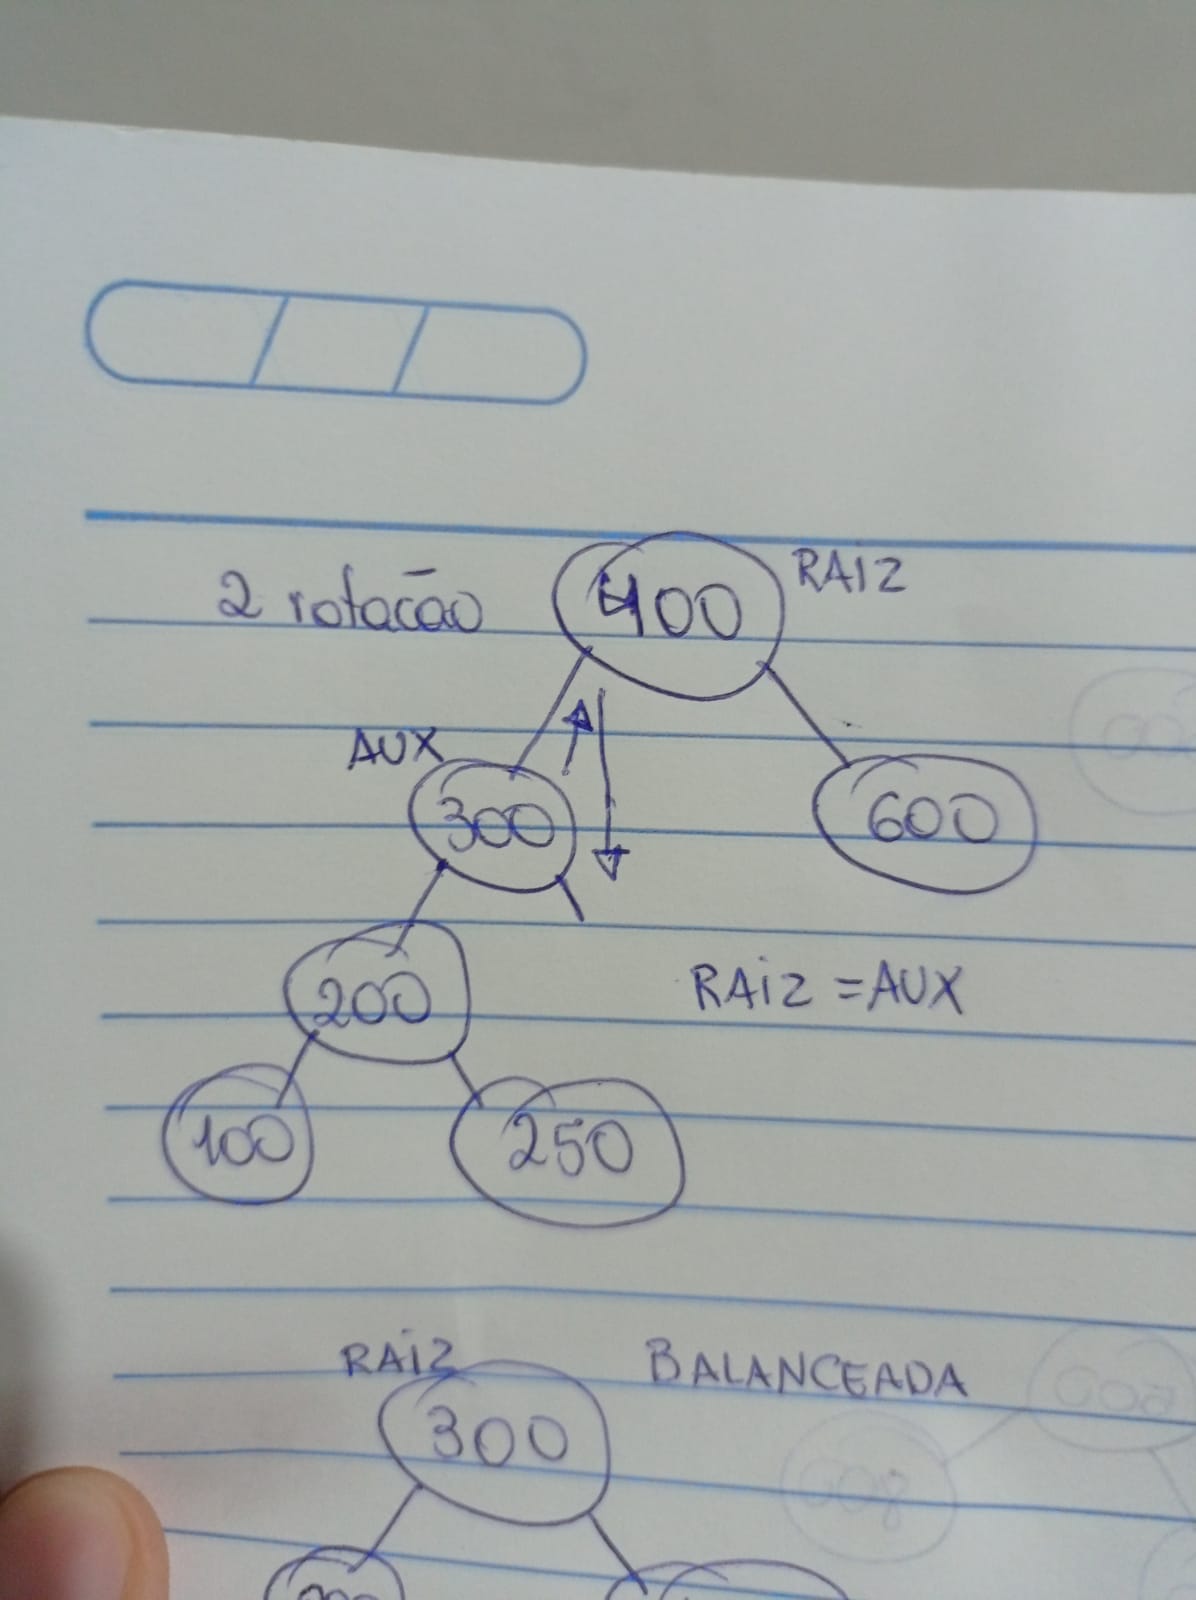 2 rotacão 400 RAIZ
AUX
300 600
200 RAIZ = AUX
100 250
RAIZ BALANCEADA
300